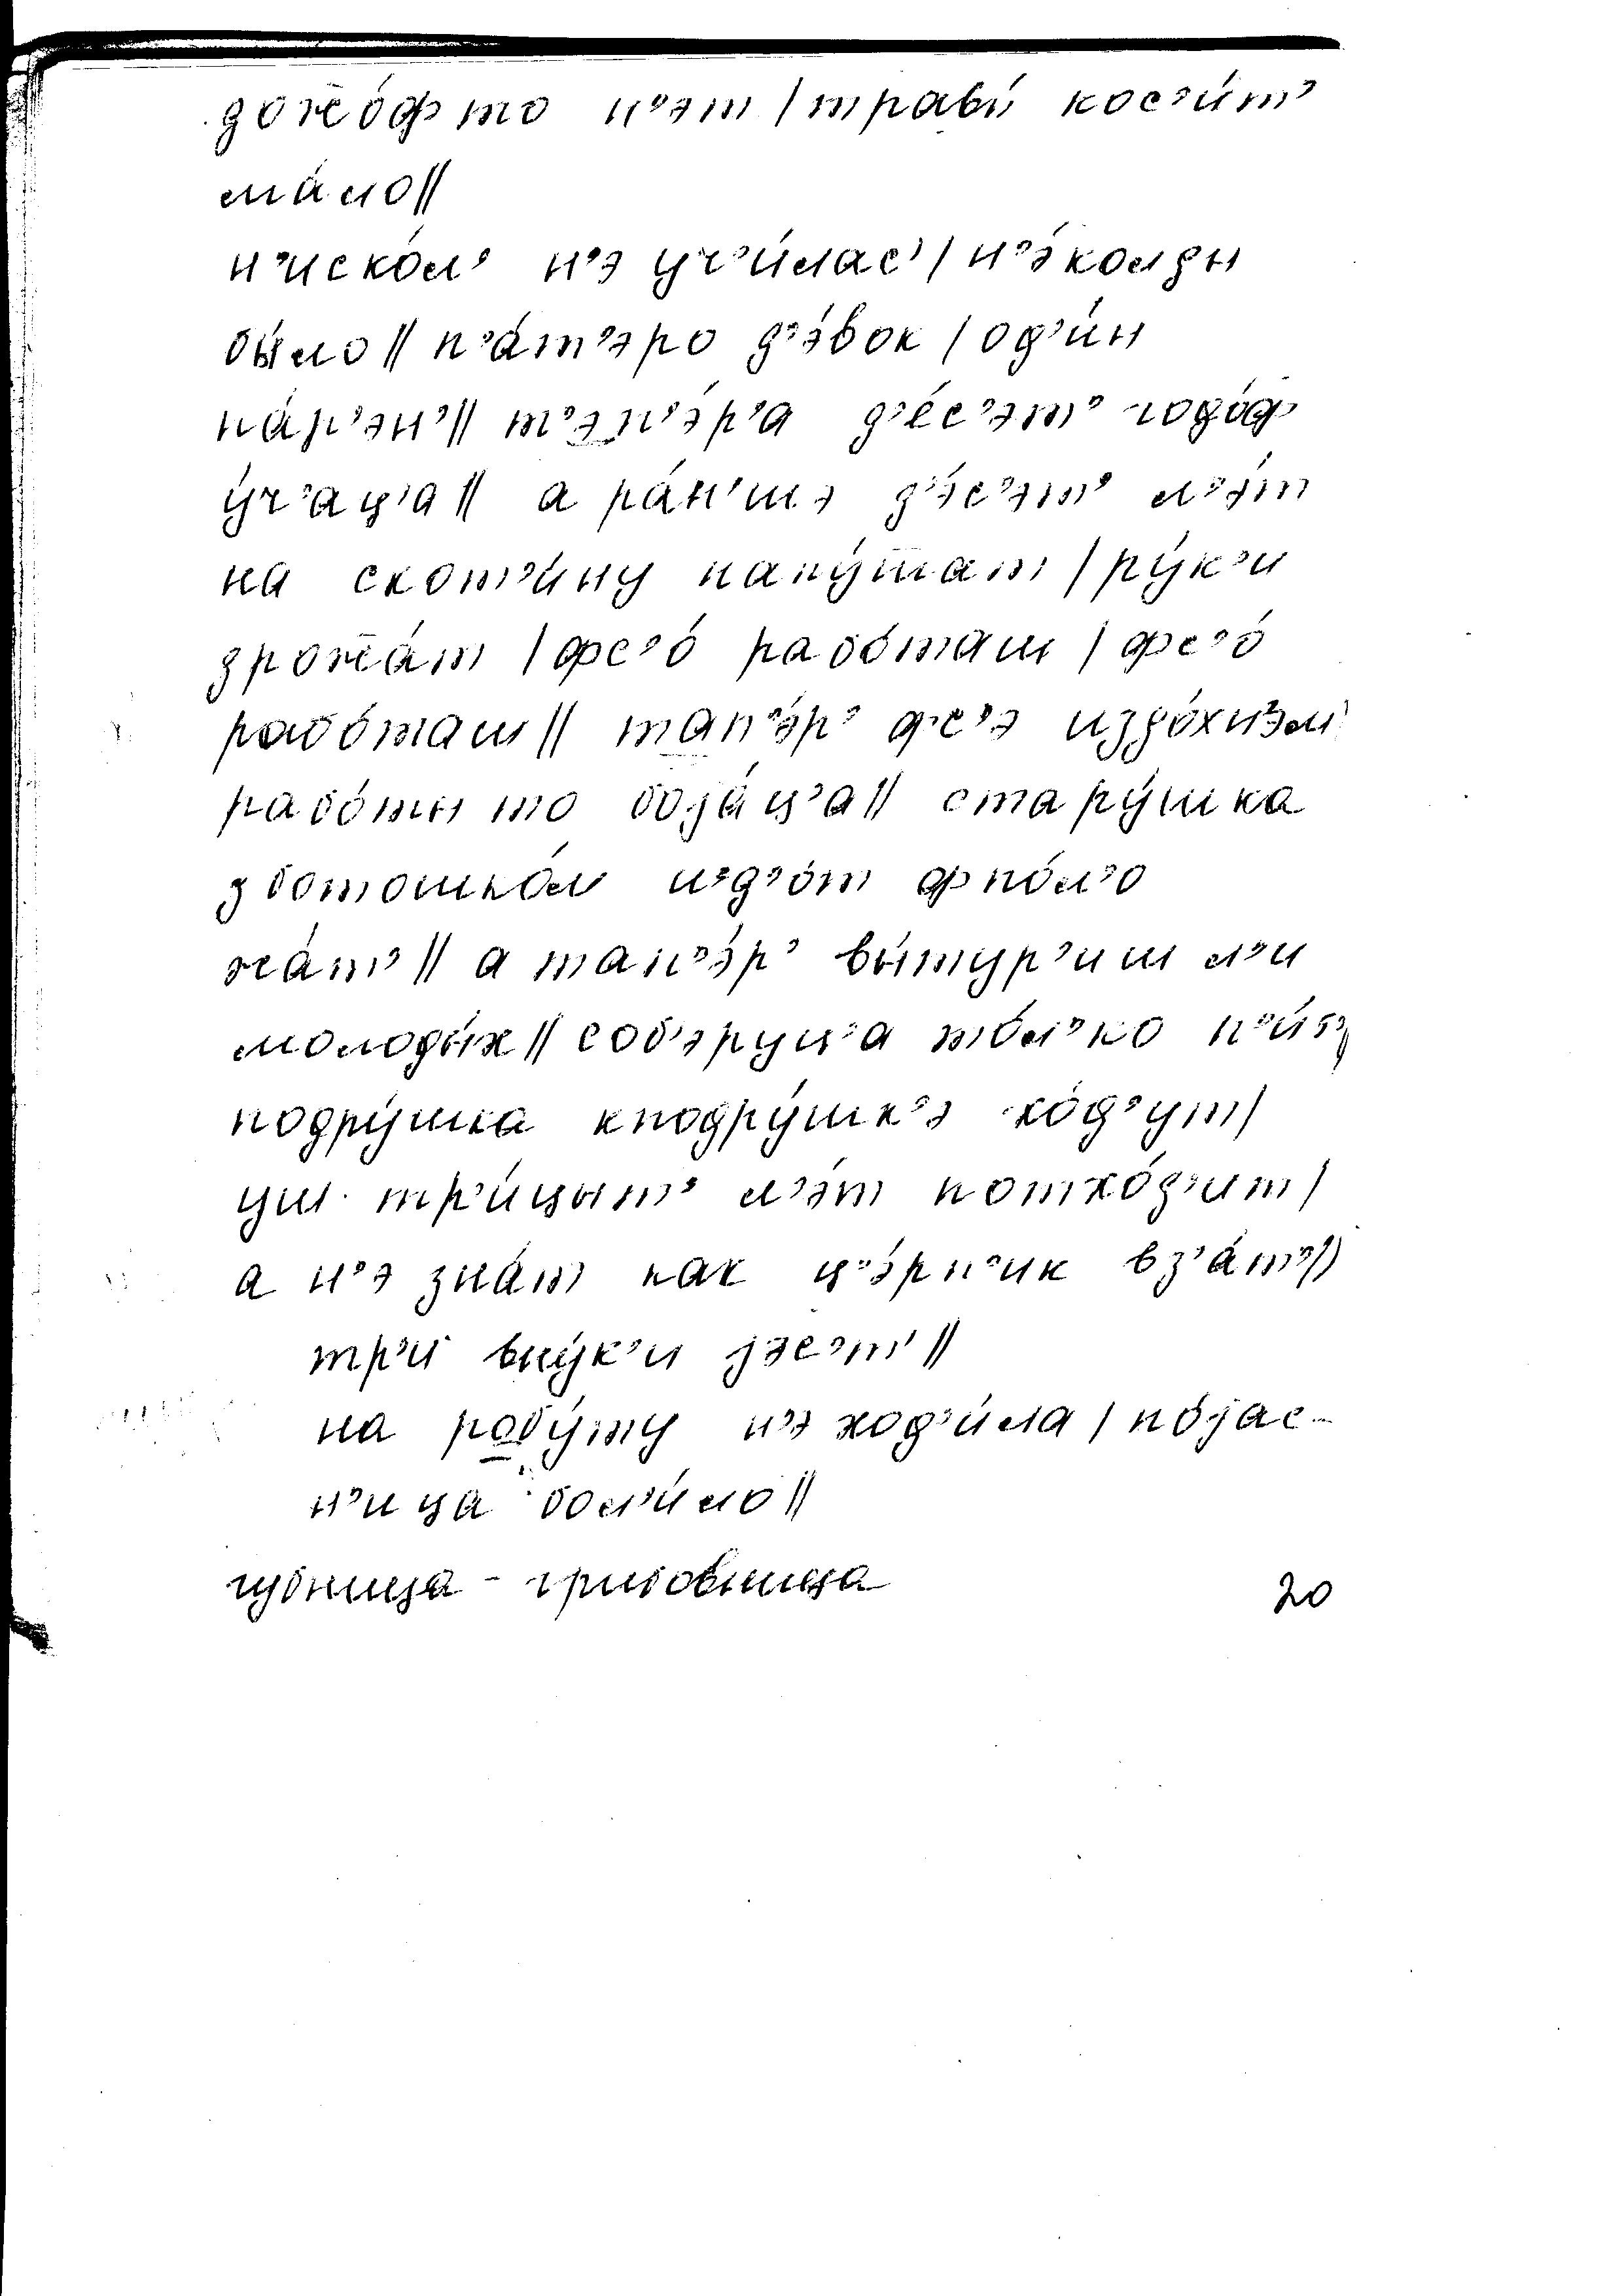 дожо́ф то н'эт / травы́ кос'и́т'
ма́ло //
н'иско́л' н'э уч'и́лас' / н'э́колды
бы́ло // п'а́т'эро д'э́вок / од'и́н
па́р'эн' // т'эп'э́р'а д'е́с'эт' годо́ф
у́ч'ац'а // а ра́н'шэ д'э́с'эт' л'э́т
на скот'и́ну напу́шат / ру́к'и
дрожа́т / фс'о́ рабо́таш / фс'о́
рабо́таш // тап'э́р' ф'с'э издо́хн'эм
рабо́ты то боjа́ц'а // стару́шка
з ботошко́м ид'о́т фпо́л'о
жа́т' // а тап'э́р' вы́тур'иш л'и
молоды́х // соб'эруц'а то́л'ко п'и́т'
подру́шка кподру́шк'э хо́д'ут /
уш тр'и́цыт' л'э́т потхо́д'ит /
а н'э зна́т как ц'э́рп'ик вз'а́т' //
тр'и вну́к'и jэс'т' //
на робу́ту н'э ход'и́ла / по́jас-
н'ица бол'и́ло //
губница - грибовница
20